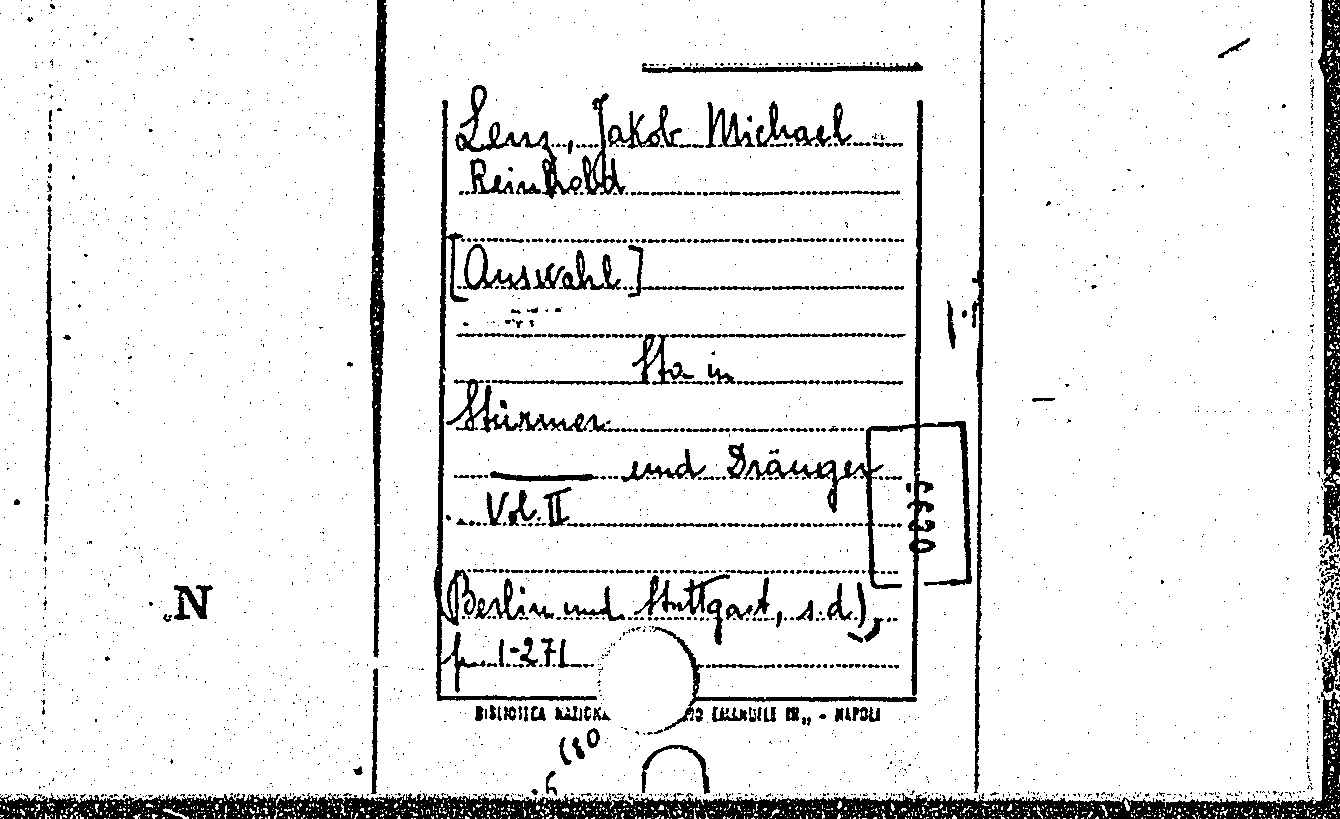 Lenz, Jakob Michael
Reinhold
[Auswahl]
Sta in
Stürmer
und Dränger
Vol. II
(Berlin und Stuttgart, s.d.),
p. 1-271
N
BIBLIOTECA NAZIONA EMANUELE III„ - NAPOLI